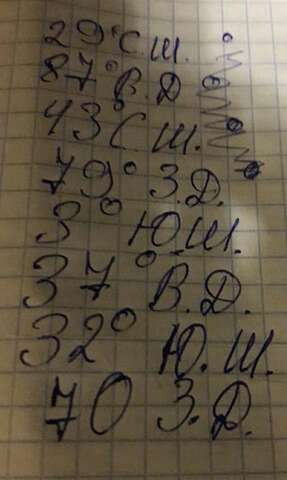 29° С.Ш.
87° В.Д
43° С.Ш.
79° З.Д.
3° Ю.Ш.
37° В.Д.
32° Ю.Ш.
70 З.Д.